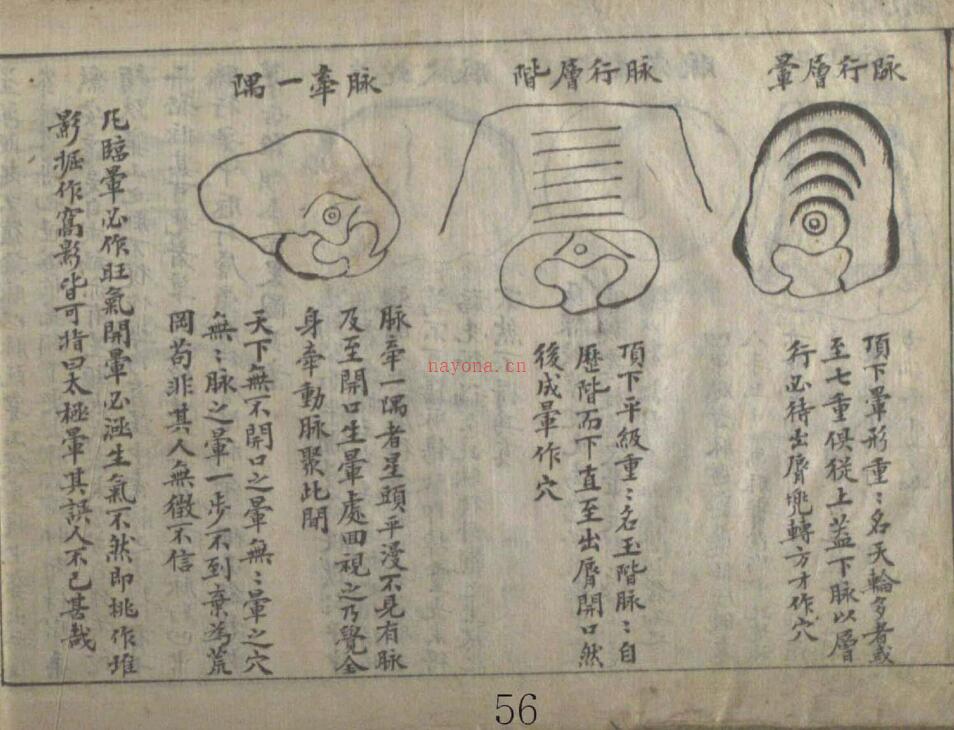 脉行層暈
頂下暈形重：名天輪多者或
至七重俱從上蓋下脉以層
行必待出脣兠轉方才作穴
脉行層階
頂下平級重：名玉階脉：自
歷階而下直至出脣開口然
後成暈作穴
脉牽一隅
脉牽一隅者星頭平漫不見有脉
及至開口生暈處四視之乃覺全
身牽動脉聚此間
天下無不開口之暈無：暈之穴
無：脉之暈一步不到棄為荒
岡苟非其人無徵不信
凡臨暈必作旺氣開暈必涵生氣不然即挑作堆
影掘作窩影皆可指曰太極暈其誤人不已甚哉
nayona.cn
56